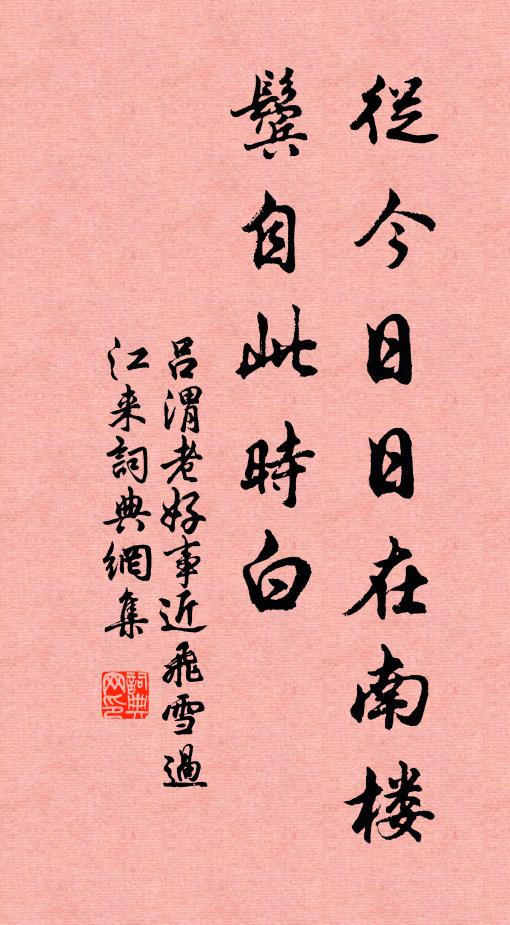 從今日日在南楼
鬓自此時白
吕渭老好事近飛雪過
江来詞典網集
詞典
网印